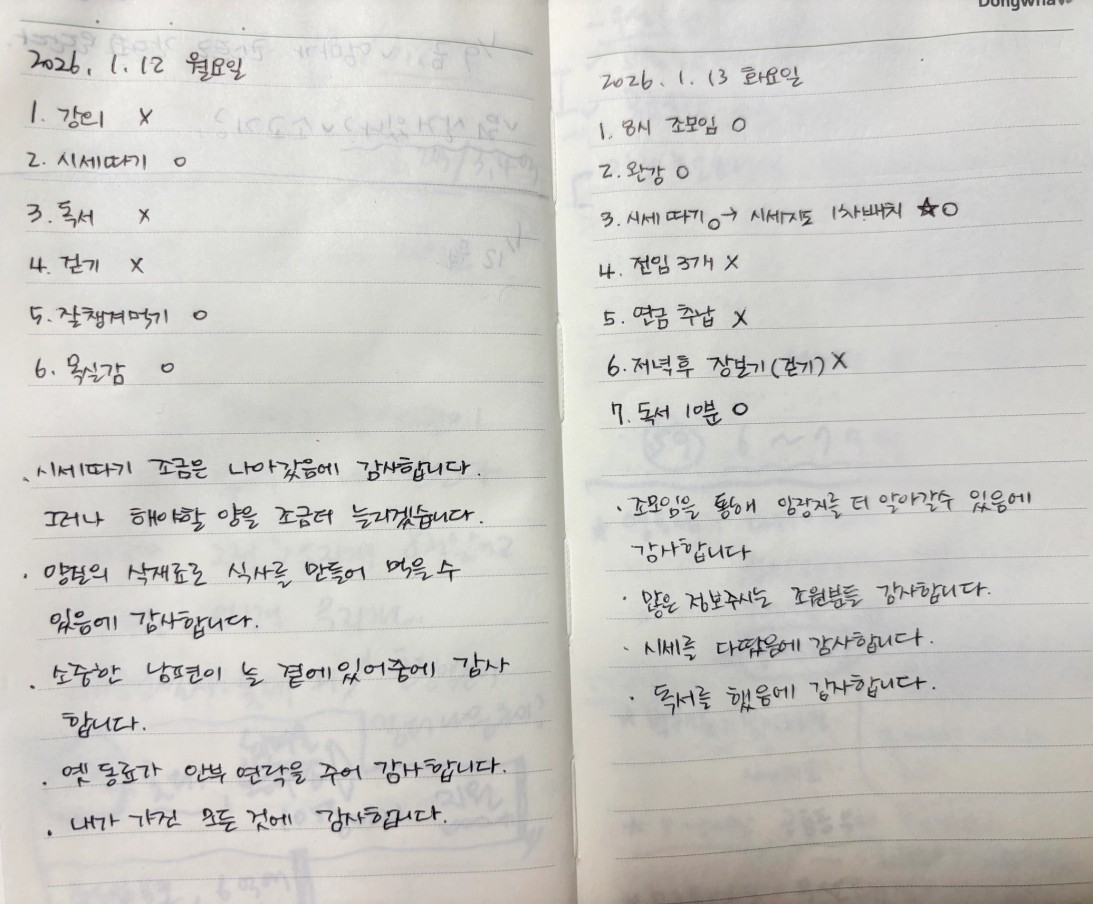 2026. 1. 12 월요일
1. 강의 X
2. 시세따기 O
3. 독서 X
4. 걷기 X
5. 잘챙겨먹기 O
6. 목실감 O
. 시세따기 조금은 나아갔음에 감사합니다.
그러나 해야할 양을 조금더 늘리겠습니다.
· 양질의 식재료로 식사를 만들어 먹을 수
있음에 감사합니다.
. 소중한 남편이 늘 곁에 있어줌에 감사
합니다.
. 옛 동료가 안부 연락을 주어 감사합니다.
. 내가 가진 모든 것에 감사합니다.
Dongwha
2026. 1. 13 화요일
1. 8시 조모임 O
2. 완강 O
3. 시세 따기 O → 시세지도 1차배치 ☆ O
4. 전임 3개 X
5. 연금 추납 X
6. 저녁후 장보기 (걷기) X
7. 독서 10분 O
· 조모임을 통해 임장지를 더 알아갈수 있음에
감사합니다
· 많은 정보주시는 조원분들 감사합니다.
· 시세를 다땄음에 감사합니다.
· 독서를 했음에 감사합니다.